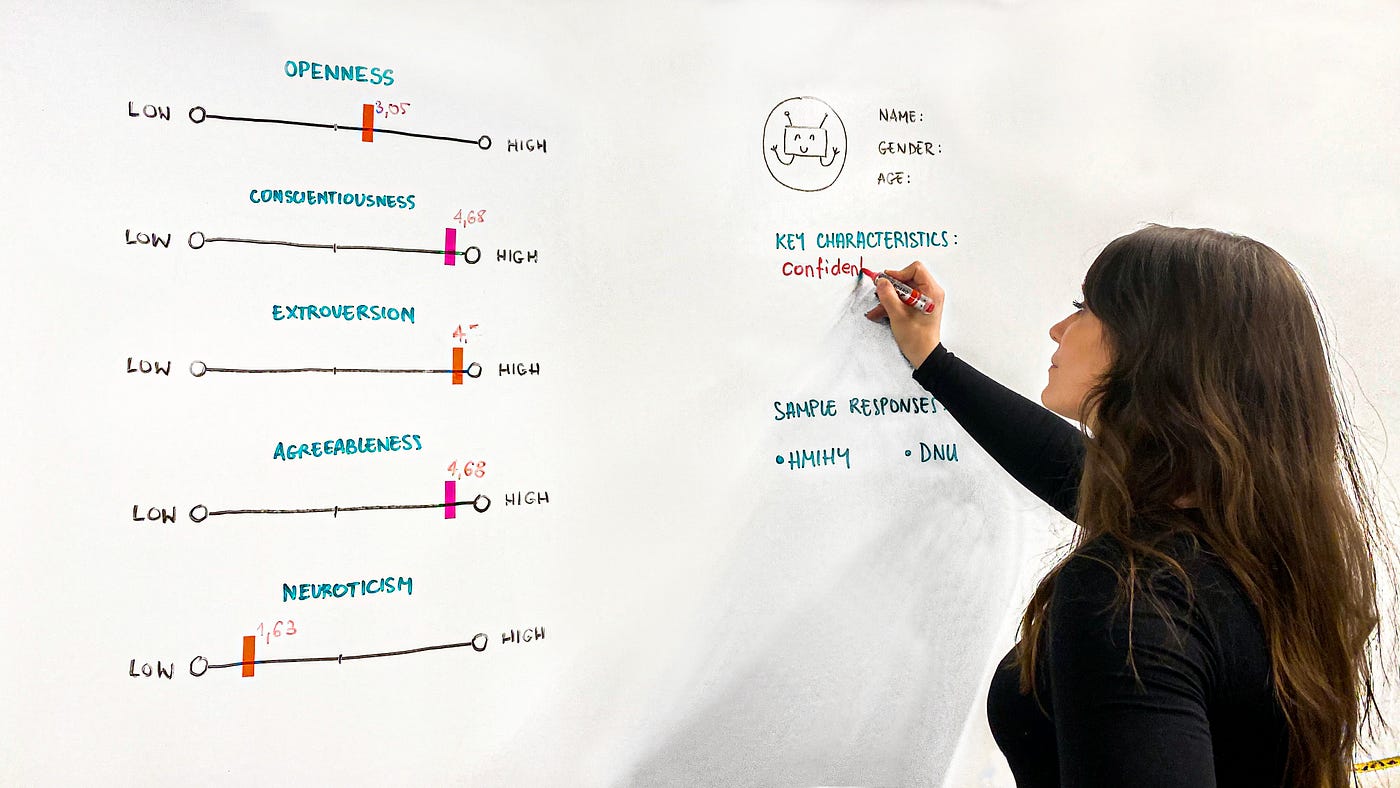 OPENNESS
3,05
LOW
HIGH
CONSCIENTIOUSNESS
4,68
LOW
HIGH
EXTROVERSION
LOW
HIGH
AGREEABLENESS
4,68
LOW
HIGH
NEUROTICISM
1,63
LOW
HIGH
NAME:
GENDER:
AGE:
KEY CHARACTERISTICS:
Confident
SAMPLE RESPONSES
• HMIHY
• DNU